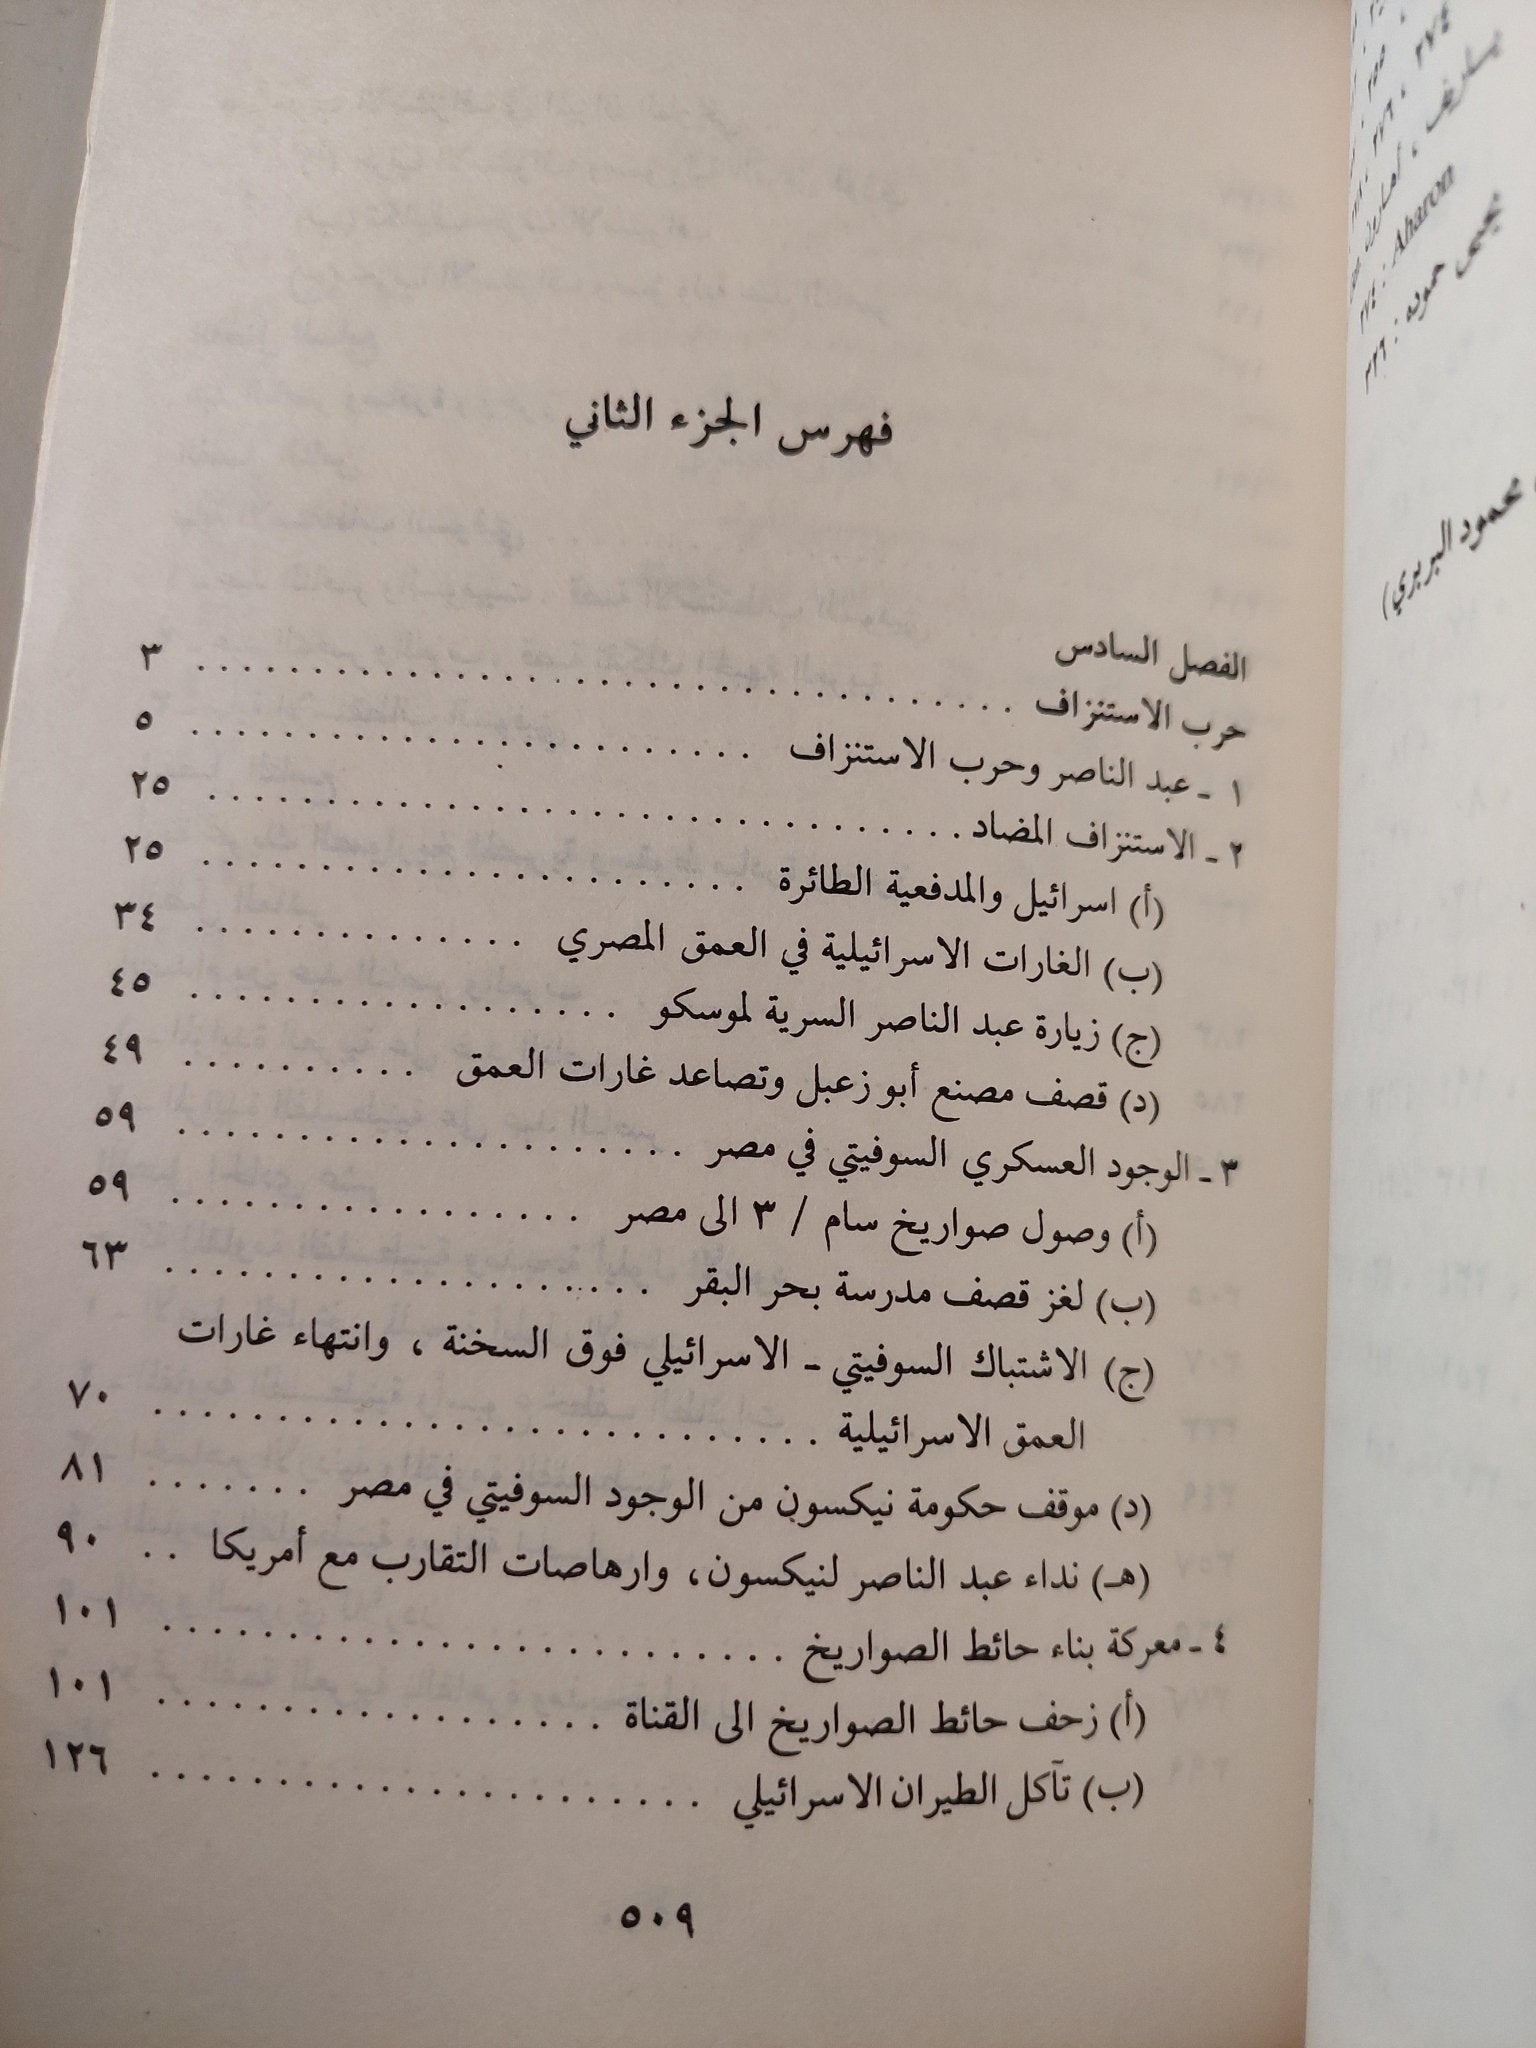 فهرس الجزء الثاني
الفصل السادس
حرب الاستنزاف . . . . . . . . . . . . . . . . . . . . . . . . . . . . . . . . ٣
١ - عبد الناصر وحرب الاستنزاف . . . . . . . . . . . . . . . . . . . . . . . . ٥
٢ - الاستنزاف المضاد . . . . . . . . . . . . . . . . . . . . . . . . . . . . . ٢٥
(أ) اسرائيل والمدفعية الطائرة . . . . . . . . . . . . . . . . . . . . . . . ٢٥
(ب) الغارات الاسرائيلية في العمق المصري . . . . . . . . . . . . . . ٣٤
(ج) زيارة عبد الناصر السرية لموسكو . . . . . . . . . . . . . . . . . . ٤٥
(د) قصف مصنع أبو زعبل وتصاعد غارات العمق . . . . . . . . . . ٤٩
٣ - الوجود العسكري السوفيتي في مصر . . . . . . . . . . . . . . . . . . . . . ٥٩
(أ) وصول صواريخ سام / ٣ الى مصر . . . . . . . . . . . . . . . . . ٥٩
(ب) لغز قصف مدرسة بحر البقر . . . . . . . . . . . . . . . . . . . . ٦٣
(ج) الاشتباك السوفيتي - الاسرائيلي فوق السخنة ، وانتهاء غارات
العمق الاسرائيلية . . . . . . . . . . . . . . . . . . . . . . . . . . . ٧٠
(د) موقف حكومة نيكسون من الوجود السوفيتي في مصر . . . . . . . ٨١
(هـ) نداء عبد الناصر لنيكسون، وارهاصات التقارب مع أمريكا . . ٩٠
٤ - معركة بناء حائط الصواريخ . . . . . . . . . . . . . . . . . . . . . . . . . ١٠١
(أ) زحف حائط الصواريخ الى القناة . . . . . . . . . . . . . . . . . . ١٠١
(ب) تآكل الطيران الاسرائيلي . . . . . . . . . . . . . . . . . . . . . . ١٢٦
٥٠٩
٢٧٤
ياريف ، أهارون
Aharon : ٢٧٤
يحيى حموده : ٢٢٦
محمود البربري)